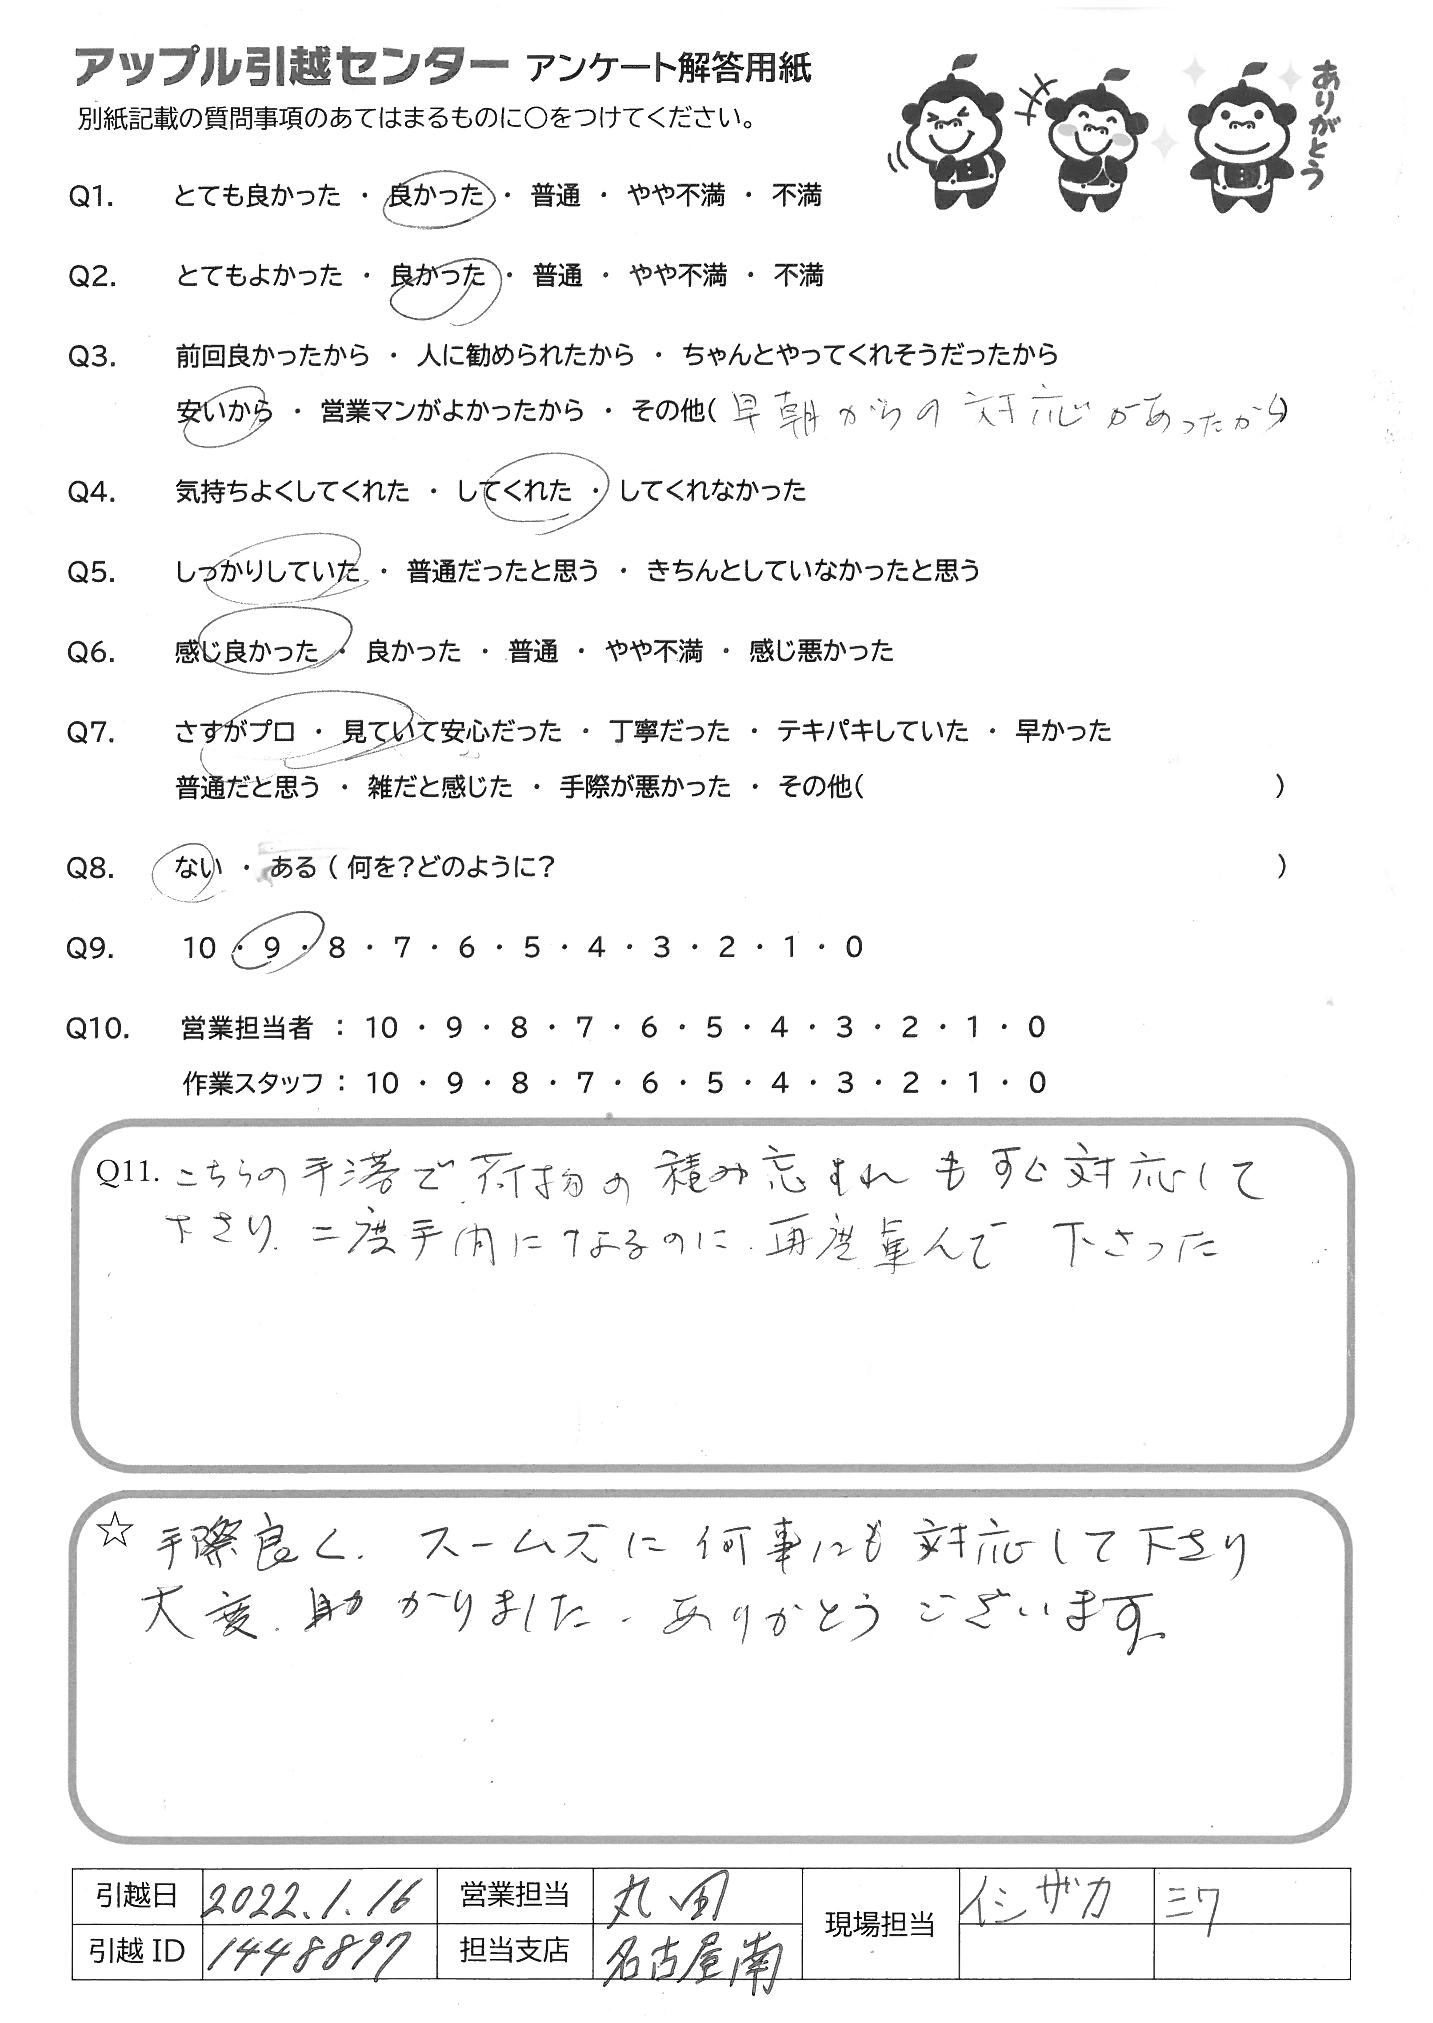 アップル引越センター アンケート解答用紙
別紙記載の質問事項のあてはまるものに〇をつけてください。
ありがとう
Q1. とても良かった ・ 良かった ・ 普通 ・ やや不満 ・ 不満
Q2. とてもよかった ・ 良かった ・ 普通 ・ やや不満 ・ 不満
Q3. 前回良かったから ・ 人に勧められたから ・ ちゃんとやってくれそうだったから
安いから ・ 営業マンがよかったから ・ その他( 早朝からの対応があったから)
Q4. 気持ちよくしてくれた ・ してくれた ・ してくれなかった
Q5. しっかりしていた ・ 普通だったと思う ・ きちんとしていなかったと思う
Q6. 感じ良かった ・ 良かった ・ 普通 ・ やや不満 ・ 感じ悪かった
Q7. さすがプロ ・ 見ていて安心だった ・ 丁寧だった ・ テキパキしていた ・ 早かった
普通だと思う ・ 雑だと感じた ・ 手際が悪かった ・ その他( )
Q8. ない ・ ある ( 何を?どのように? )
Q9. 10 ・ 9 ・ 8 ・ 7 ・ 6 ・ 5 ・ 4 ・ 3 ・ 2 ・ 1 ・ 0
Q10. 営業担当者 : 10 ・ 9 ・ 8 ・ 7 ・ 6 ・ 5 ・ 4 ・ 3 ・ 2 ・ 1 ・ 0
作業スタッフ : 10 ・ 9 ・ 8 ・ 7 ・ 6 ・ 5 ・ 4 ・ 3 ・ 2 ・ 1 ・ 0
Q11. こちらの手落で荷物の積み忘すれもすぐ対応して
下さり、二度手間になるのに、再度運んで下さった
☆ 手際良く、スームズに何事にも対応して下さり
大変、助かりました。ありがとうございます。
引越日 2022.1.16 営業担当 丸田 現場担当 イシザカ ミワ
引越 ID 1448897 担当支店 名古屋南